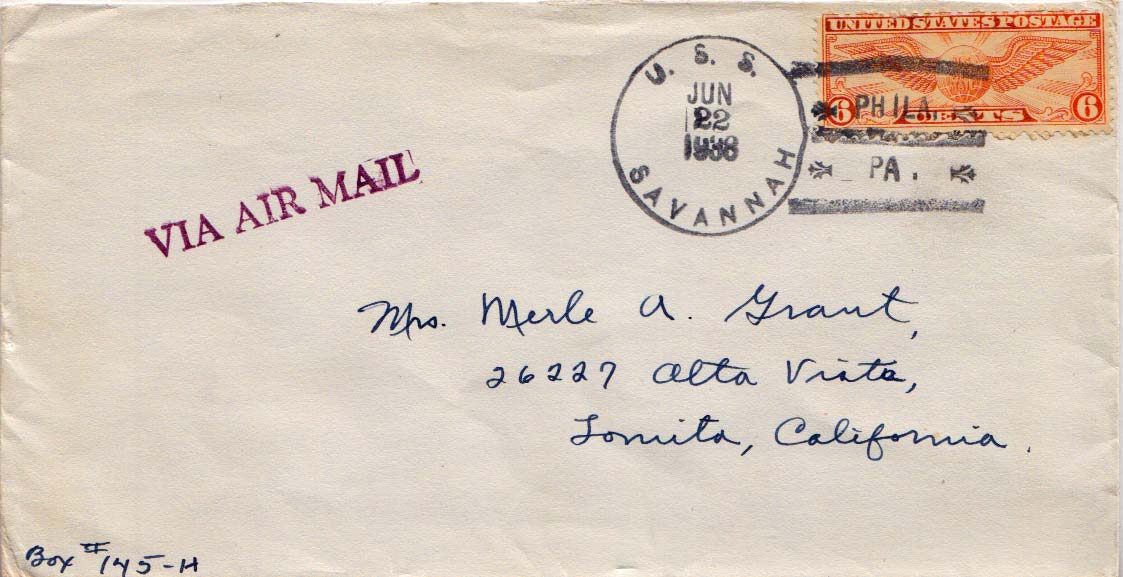 UNITED STATES POSTAGE
6 CENTS 6
U. S. S.
SAVANNAH
JUN
22
1938
PHILA.
PA.
VIA AIR MAIL
Mrs. Merle A. Grant,
26227 Alta Vista,
Lomita, California.
Box # 145-H